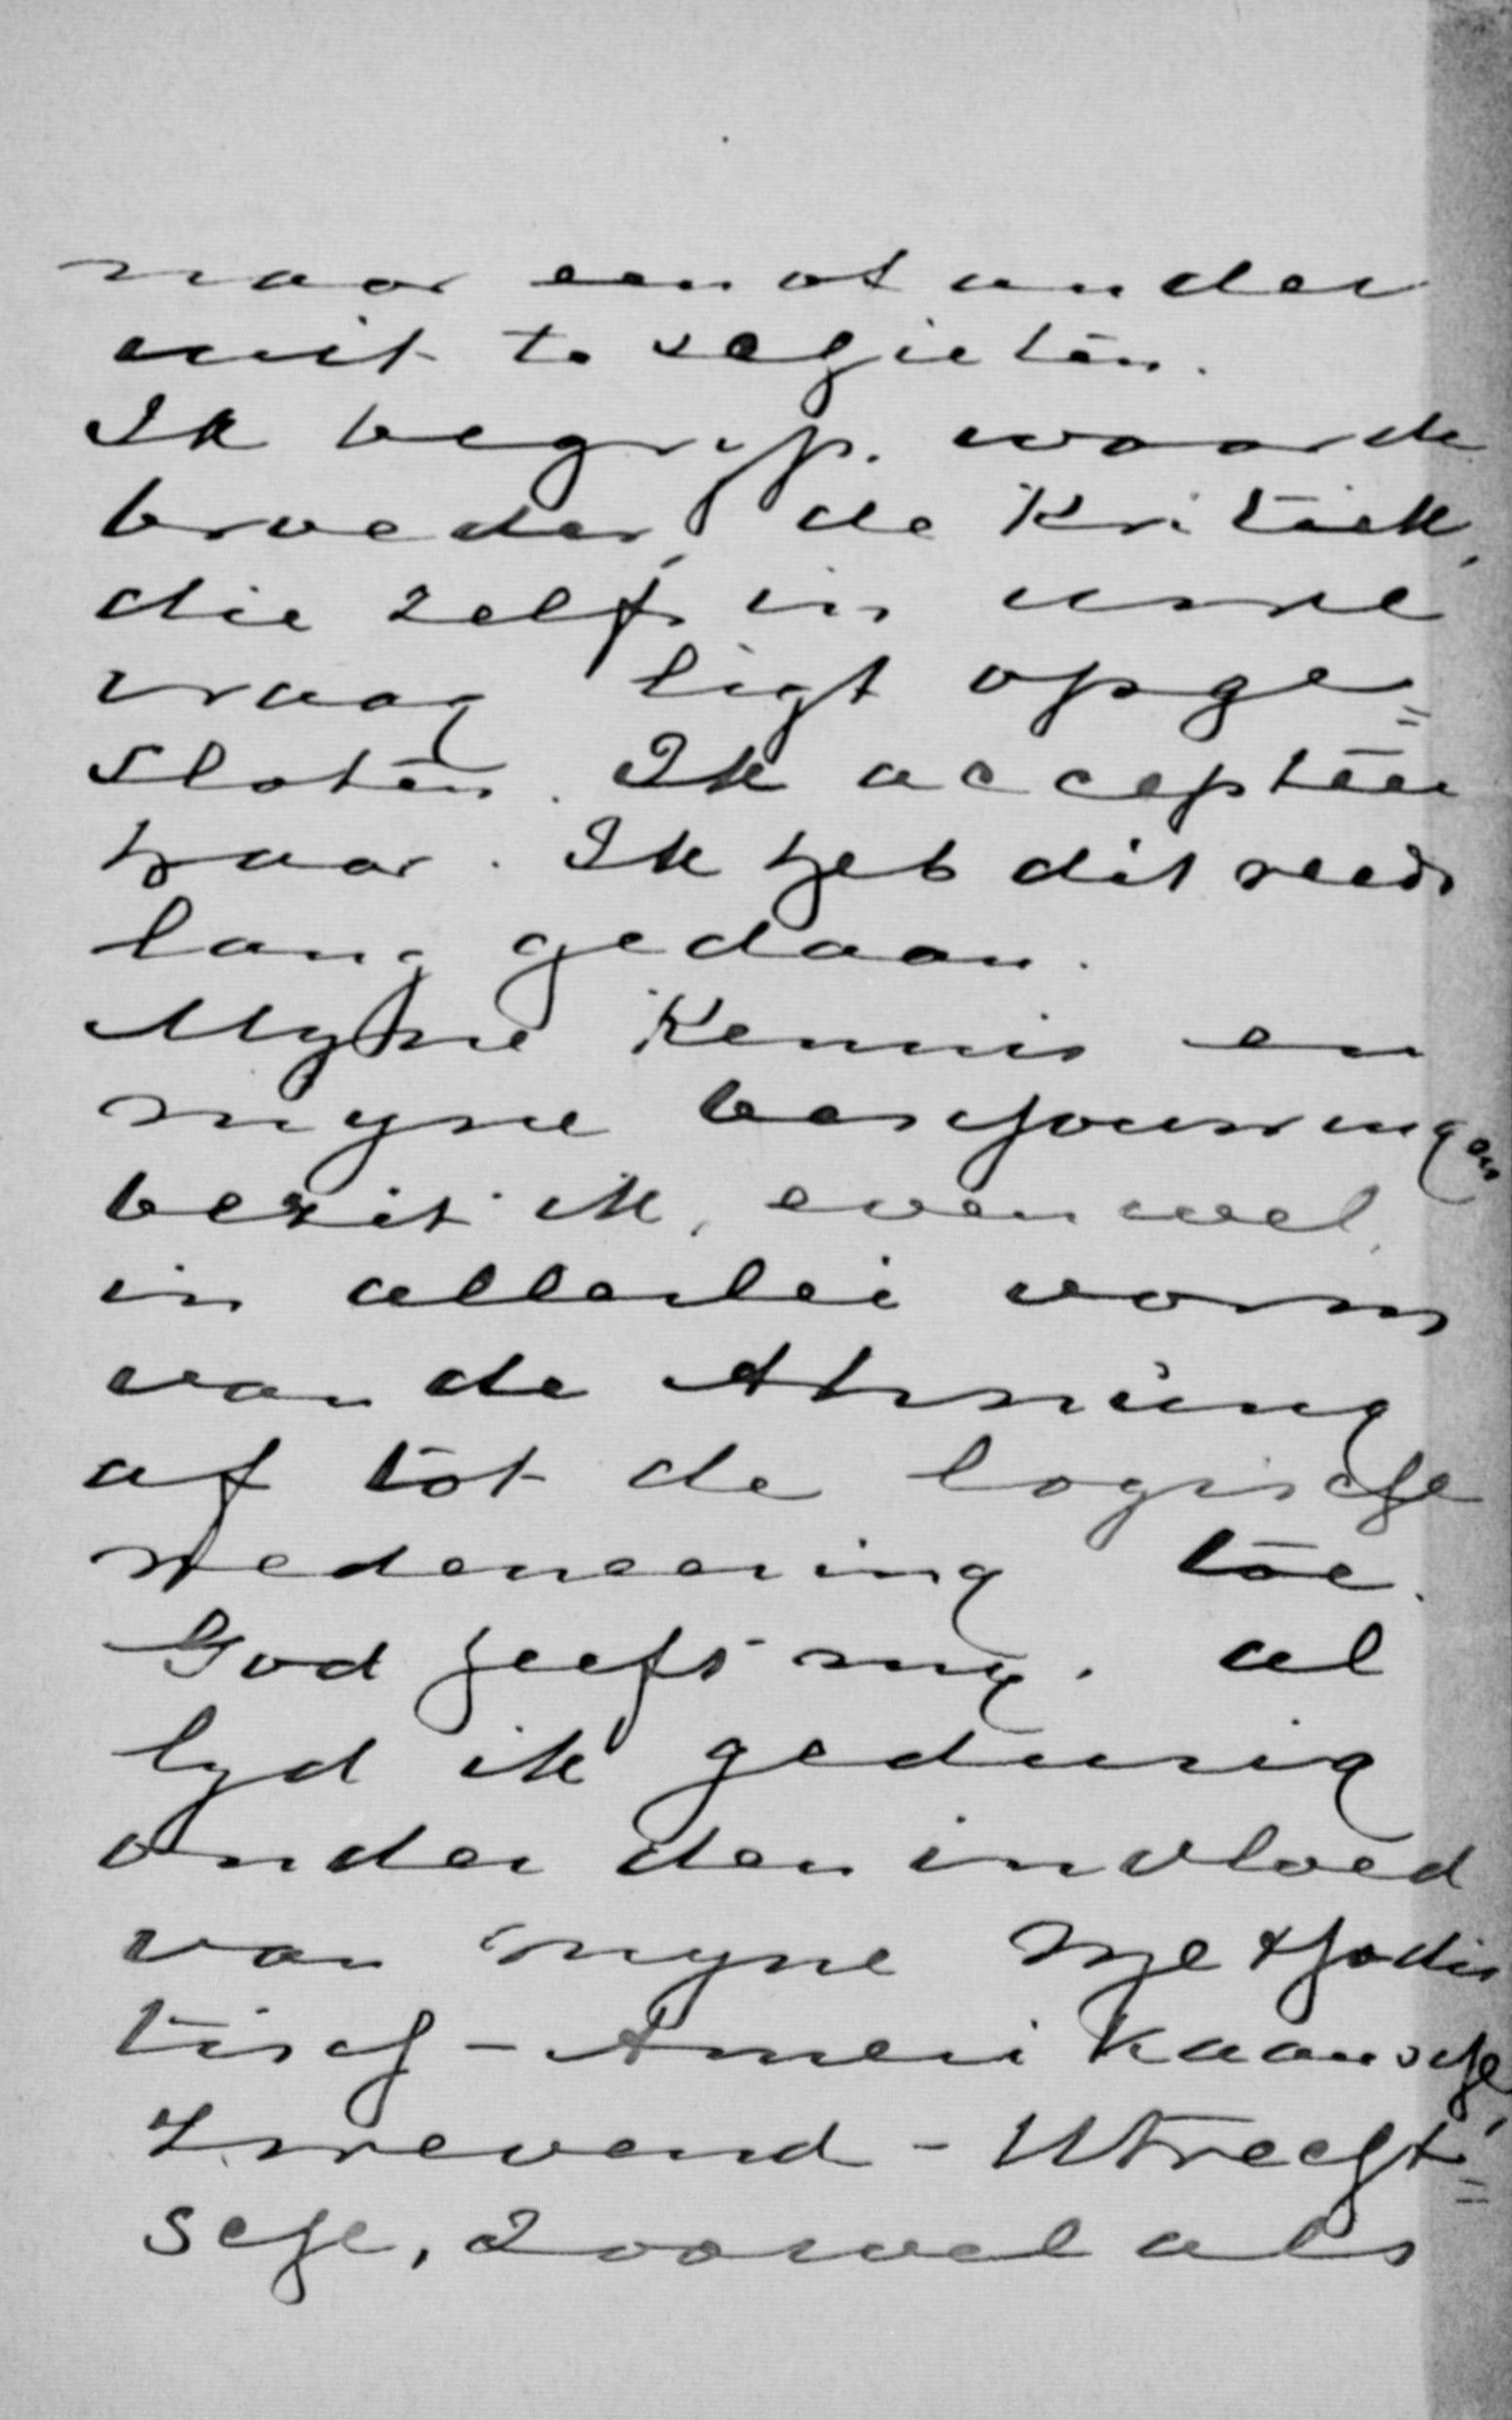 naar een of ander
wit te
Ik begrijp. waarde
broeder, de Kritiek,
die zelfs in uwe
vraag ligt opge=
sloten. Ik accepteer
haar. Ik heb dit reeds
lang gedaan.
Myne Kennis en
myne beschouwingen
bezit ik, evenwel,
in allerlei vorm
van de Ahnung
af tot de logische
redeneering toe.
God heeft my. al
lyd ik gedurig
onder den invloed
van myne methodis
tisch-Amerikaansche,
Irrevend-Utrecht=
sche, zoowel als